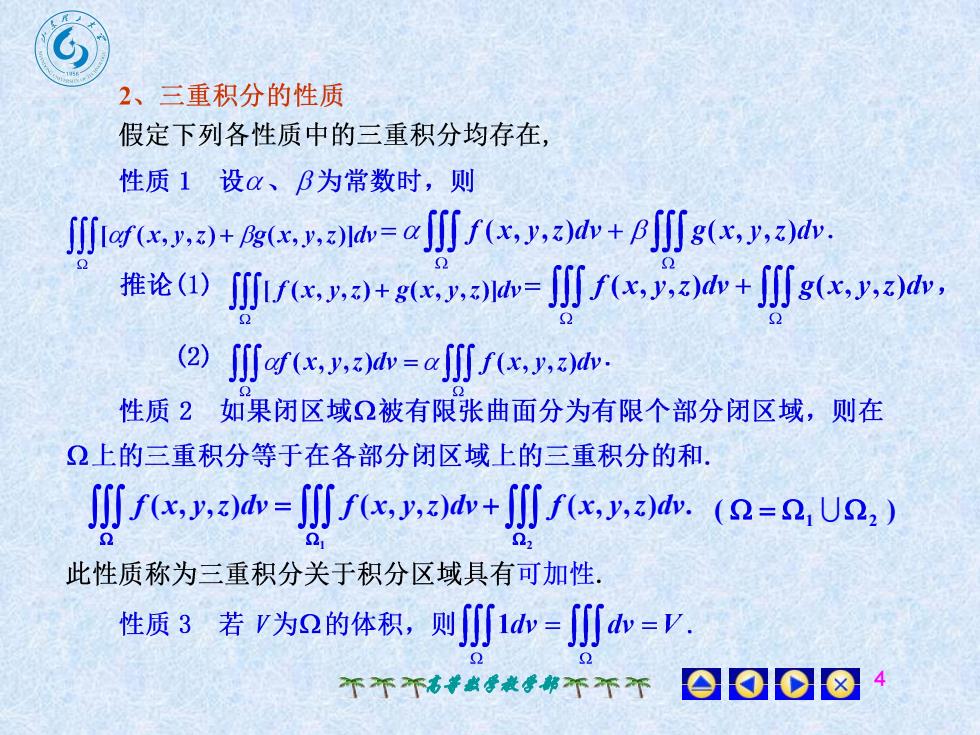 2、三重积分的性质
假定下列各性质中的三重积分均存在,
性质 1 设α、β为常数时，则
∭_Ω [αf(x,y,z)+βg(x,y,z)]dv=α∭_Ω f(x,y,z)dv+β∭_Ω g(x,y,z)dv.
推论(1) ∭_Ω [f(x,y,z)+g(x,y,z)]dv=∭_Ω f(x,y,z)dv+∭_Ω g(x,y,z)dv，
(2) ∭_Ω αf(x,y,z)dv=α∭_Ω f(x,y,z)dv.
性质 2 如果闭区域Ω被有限张曲面分为有限个部分闭区域，则在
Ω上的三重积分等于在各部分闭区域上的三重积分的和.
∭_Ω f(x,y,z)dv=∭_Ω₁ f(x,y,z)dv+∭_Ω₂ f(x,y,z)dv. (Ω=Ω₁∪Ω₂)
此性质称为三重积分关于积分区域具有可加性.
性质 3 若 V为Ω的体积，则∭_Ω 1dv=∭_Ω dv=V.
高等数学教学部
4